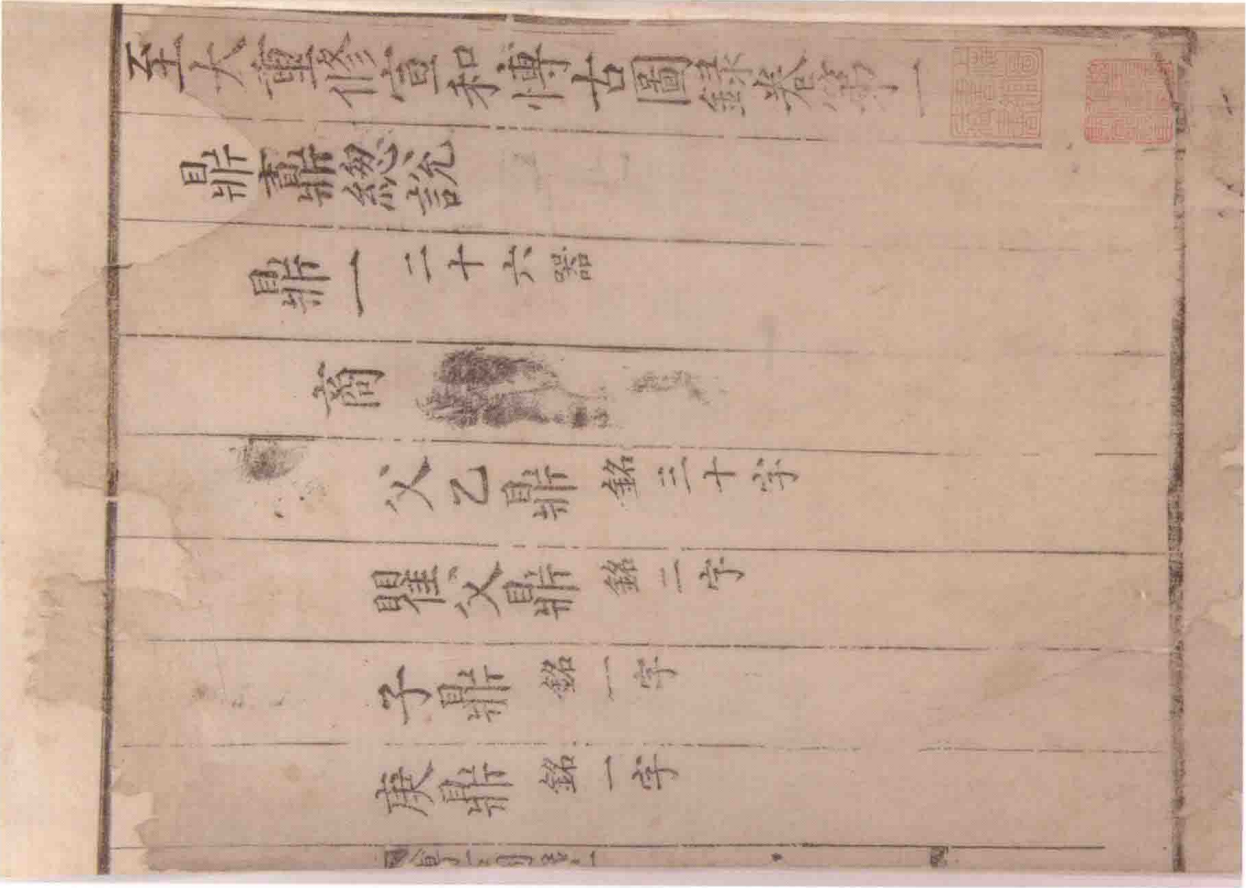 至大重修宣和博古圖録卷第一
鼎鼒緫說
鼎一 二十六器
商
父乙鼎 銘三十字
瞿父鼎 銘二字
子鼎 銘一字
庚鼎 銘一字